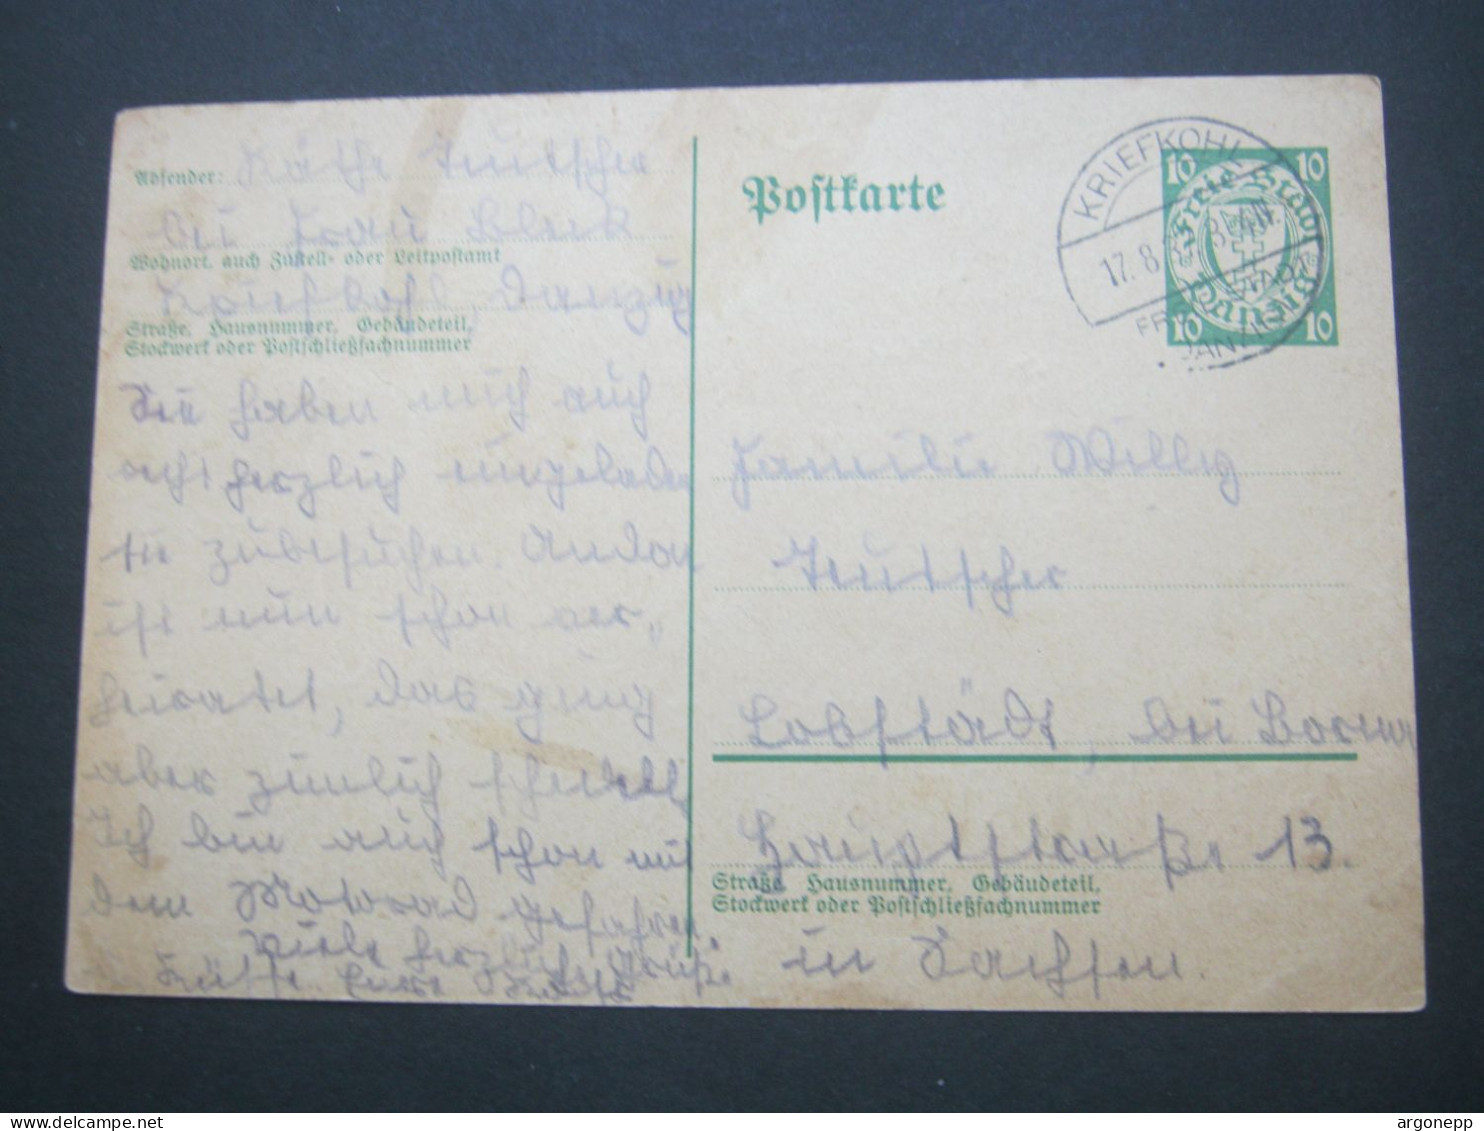 Absender: Käthe Teutscher
bei Frau Bleck
Wohnort, auch Zustell- oder Leitpostamt
Kriefkohl Danzig
Straße, Hausnummer, Gebäudeteil,
Stockwerk oder Postschließfachnummer
Sie haben mich auch
recht herzlich eingeladen
sie zubesuchen.
ist nun schon ver-
heiratet, das ging
aber zimlich schnell
Ich bin auch schon mit
dem Motorad gefahren
Viele herzliche Grüße
Eure Käthe
Postkarte
KRIEFKOHL
17. 8.
FR STADT
DANZIG
10 10
Freie Stadt
Danzig
10 10
Familie Willy
Teutscher
Lobstädt, bei Borna
Hauptstraße 13.
Straße, Hausnummer, Gebäudeteil,
Stockwerk oder Postschließfachnummer
in Sachsen.
delcampe.net
argonepp